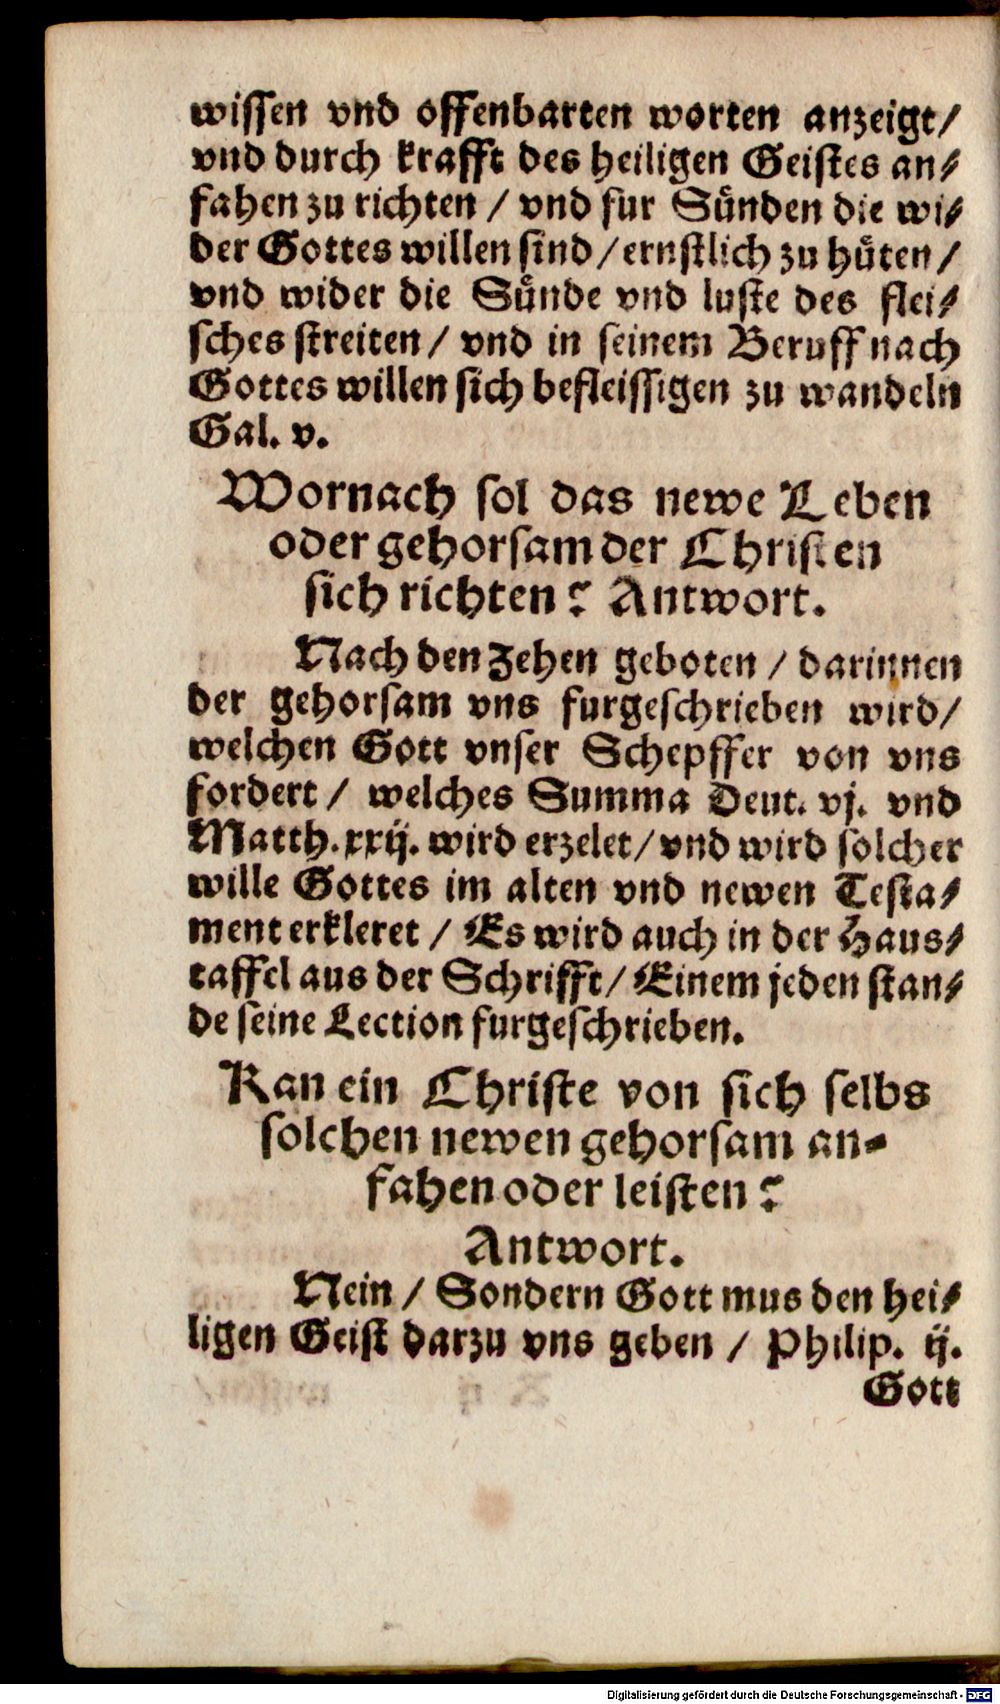 wissen vnd offenbarten worten anzeigt/
vnd durch krafft des heiligen Geistes an⸗
fahen zu richten / vnd fur Sůnden die wi⸗
der Gottes willen sind / ernstlich zu hůten /
vnd wider die Sůnde vnd luste des flei⸗
sches streiten / vnd in seinem Beruff nach
Gottes willen sich befleissigen zu wandeln
Gal. v.
Wornach sol das newe Leben
oder gehorsam der Christen
sich richten? Antwort.
Nach den Zehen geboten / darinnen
der gehorsam vns furgeschrieben wird/
welchen Gott vnser Schepffer von vns
fordert / welches Summa Deut. vj. vnd
Matth. xxij. wird erzelet/ vnd wird solcher
wille Gottes im alten vnd newen Testa⸗
ment erkleret / Es wird auch in der Haus⸗
taffel aus der Schrifft/ Einem jeden stan⸗
de seine Lection furgeschrieben.
Kan ein Christe von sich selbs
solchen newen gehorsam an⸗
fahen oder leisten?
Antwort.
Nein / Sondern Gott mus den hei⸗
ligen Geist darzu vns geben / Philip. ij.
Gott
Digitalisierung gefördert durch die Deutsche Forschungsgemeinschaft - DFG